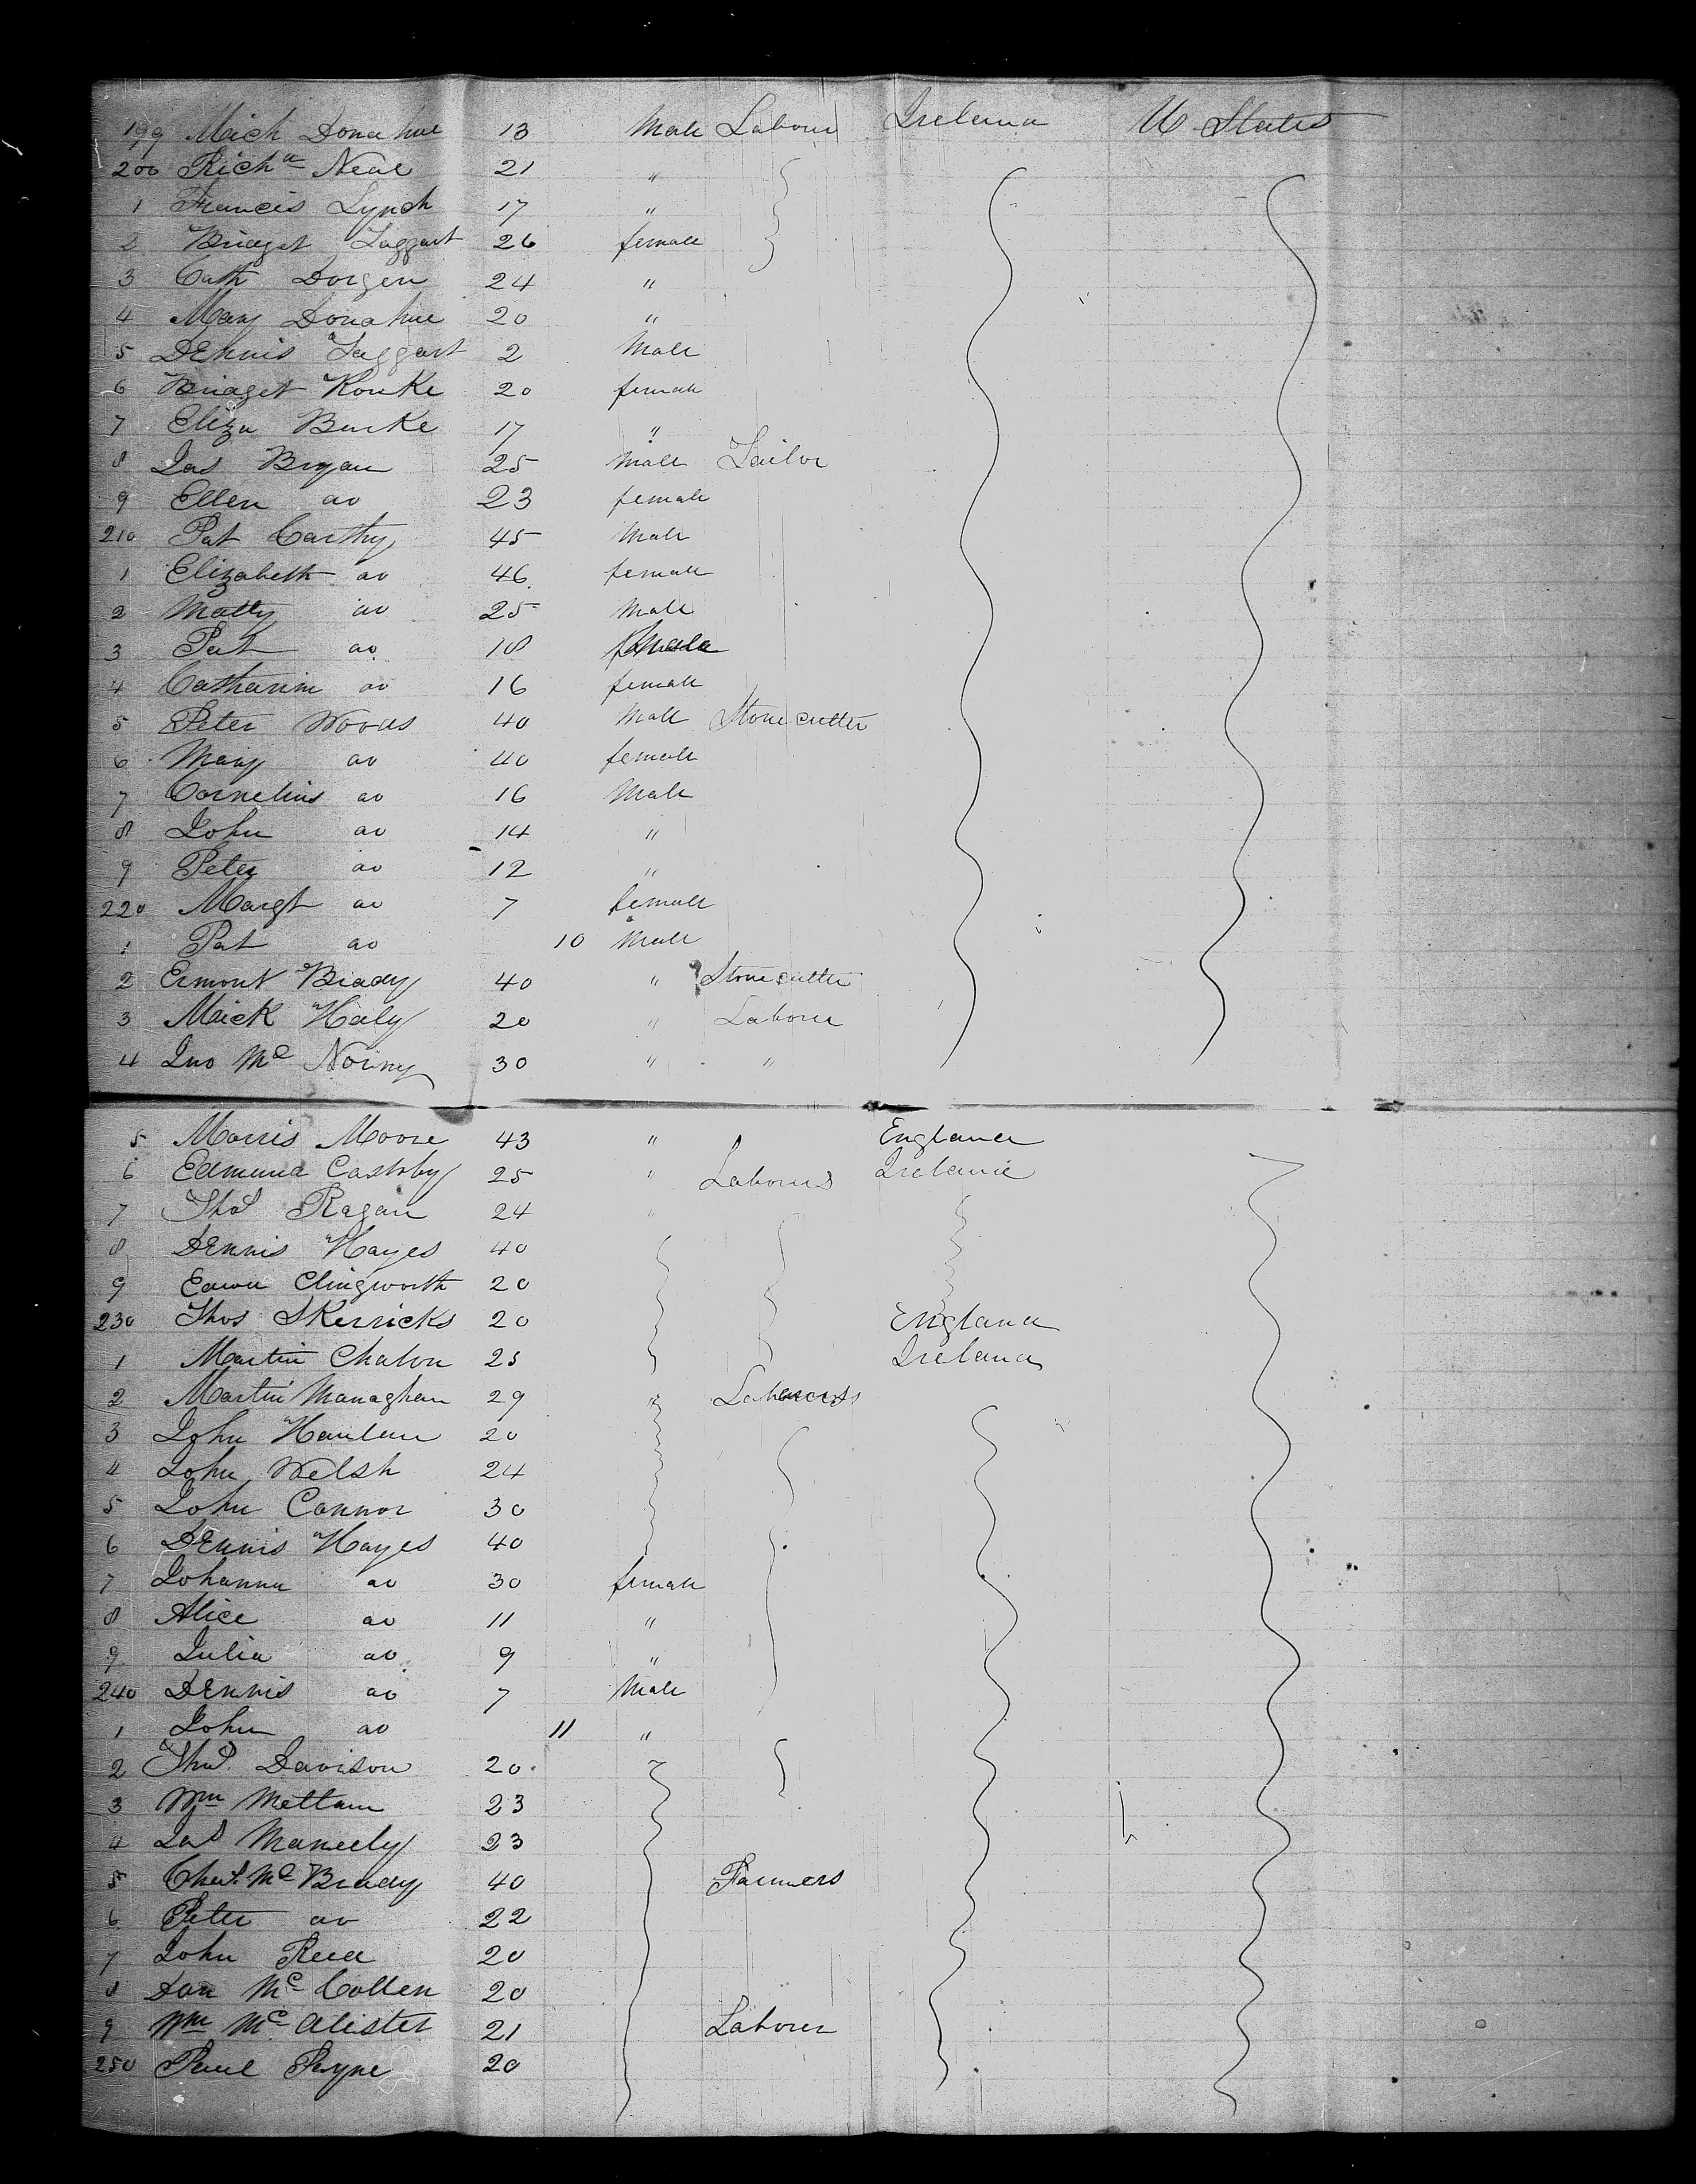 199 Mich Donahue 13 Male Labour Ireland U States
200 Richd Neal 21 "
1 Francis Lynch 17 "
2 Bridget Taggart 26 female
3 Cath Dorgen 24 "
4 Mary Donahue 20 "
5 Dennis Taggart 2 Male
6 Bridget Rourke 20 female
7 Eliza Burke 17 "
8 Jas Bryan 25 Male Tailor
9 Ellen do 23 female
210 Pat Carthy 45 Male
1 Elizabeth do 46 female
2 Matty do 25 Male
3 Pat do 18
4 Catharine do 16 female
5 Peter Woods 40 Male Stonecutter
6 Mary do 40 female
7 Cornelius do 16 Male
8 John do 14 "
9 Peter do 12 "
220 Margt do 7 female
1 Pat do 10 Male
2 Ermont Brady 40 " Stonecutter
3 Mick Haly 20 " Labour
4 Jno Mc 30 " "
5 Morris Moore 43 " England
6 Edmund 25 " Labours Ireland
7 Thos Ragan 24 "
8 Dennis Hayes 40
9 Edwd Clingworth 20
230 Thos Skerricks 20 England
1 Martin Chalon 25 Ireland
2 Martin Managhan 29 " Labourers
3 John Hanlan 20
4 John Welsh 24
5 John Connor 30
6 Dennis Hayes 40
7 Johanna do 30 female
8 Alice do 11 "
9 Julia do 9 "
240 Dennis do 7 Male
1 John do 11 "
2 Thos Davison 20
3 Wm Mettam 23
4 Jas Maneely 23
5 Chas Mc Brady 40 Farmers
6 Peter do 22
7 John Reed 20
8 Dan Mc Collen 20
9 Wm Mc Alister 21 Labour
250 Paul Payne 20